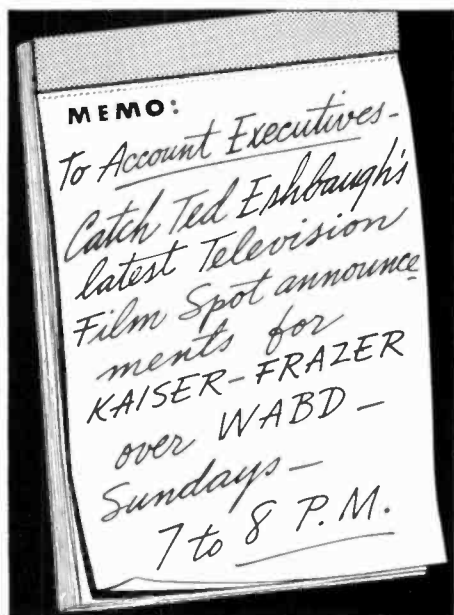 MEMO:
To Account Executives-
Catch Ted Eshbaugh's
latest Television
Film Spot announce
ments for
KAISER-FRAZER
over WABD-
Sundays-
7 to 8 P.M.